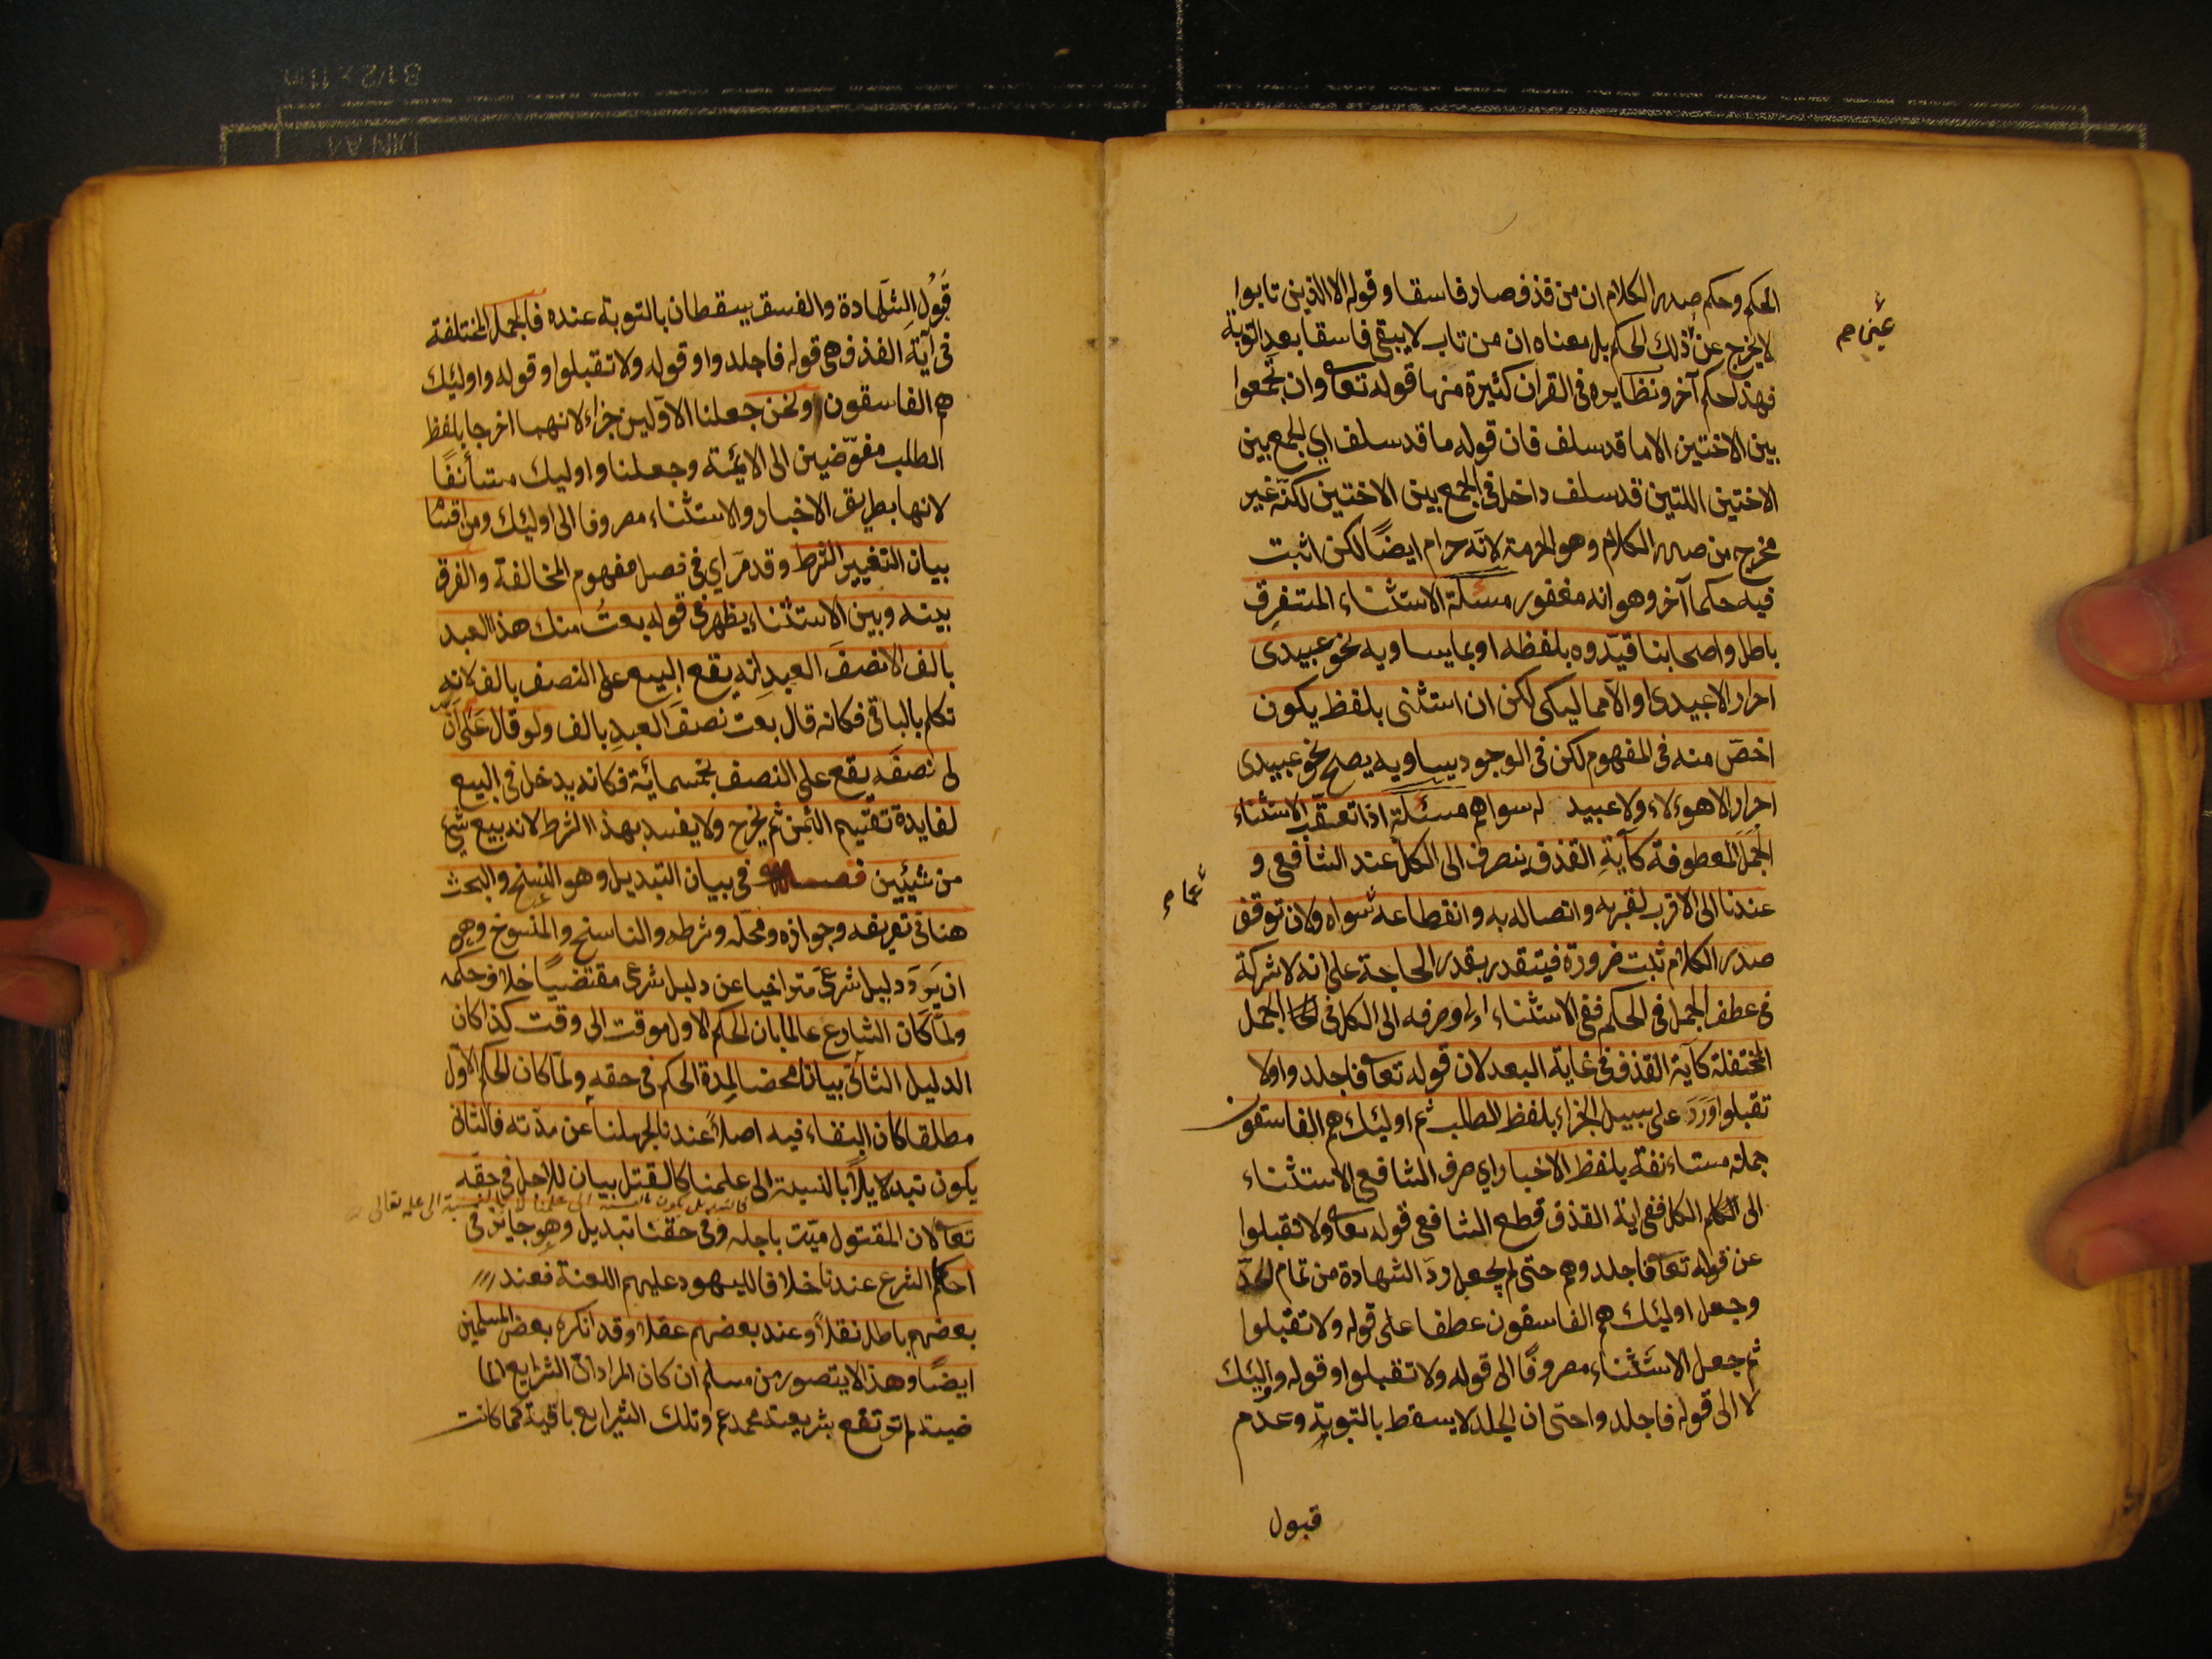 الحكم وحكم صدر الكلام ان من قذف صار فاسقا وقوله الا الذين تابوا
لا يخرج عن ذلك الحكم بل معناه ان من تاب لا يبقى فاسقا بعد التوبة
فهذا حكم آخر ونظايره فى القران كثيرة منها قوله تعا وان تجمعوا
بين الاختين الا ما قد سلف فان قوله ما قد سلف اي الجمع بين
الاختين اللتين قد سلف داخل فى الجمع بين الاختين لكنّه غير
مخرج من صدر الكلام وهو الحرمة لانّه حرام ايضًا لكن اثبت
فيه حكما آخر وهو انه مغفور مسئلة الاستثناء المستغرق
باطل واصحابنا قيّدوه بلفظه او بما يساويه نحو عبيدى
احرار الا عبيدى او الا مماليكى لكن ان استثنى بلفظ يكون
اخصّ منه فى المفهوم لكن فى الوجود يساويه يصح نحو عبيدى
احرار الا هؤلاء ولا عبيد له سواهم مسئلة اذا تعقّب الاستثناء
الجمل المعطوفة كآية القذف ينصرف الى الكل عند الشافعى و
عندنا الى الاقرب لقربه واتصاله به وانقطاعه سواه ولان توقف
عما
صدر الكلام ثبت ضرورة فيتقدر بقدر الحاجة على انه لا شركة
فى عطف الجمل فى الحكم ففى الاستثناء اولى وصرفه الى الكل فى الجمل
المختلفة كآية القذف فى غاية البعد لان قوله تعا فاجلدوا ولا
تقبلوا وَرَدَ على سبيل الجزاء بلفظ الطلب ثم اوليئك هم الفاسقون
جملة مستاءنفة بلفظ الاخبار اي صرف الشافعى الاستثناء
الى الكل ففى اية القذف قطع الشافعى قوله تعا ولا تقبلوا
عن قوله تعا فاجلدوهم حتى لم يجعل ردّ الشهادة من تمام الحدّ
وجعل اوليئك هم الفاسقون عطفا على قوله ولا تقبلوا
ثم جعل الاستثناء مصروفًا الى قوله ولا تقبلوا وقوله واليئك
لا الى قوله فاجلدوا حتى ان الجلد لا يسقط بالتوبة وعدم
قبول
قَبُولِ الشهادة والفسق يسقطان بالتوبة عنده فالجمل المختلفة
فى آية القذف هى قوله فاجلدوا وقوله ولا تقبلوا وقوله واوليئك
هم الفاسقون ونحن جعلنا الاوّلين جزاء لانهما اخرجا بلفظ
الطلب مفوّضين الى الايمّة وجعلنا واوليك مستأنفًا
لانها بطريق الاخبار والاستثناء مصروفا الى اوليئك ومن اقسام
بيان التغيير الشرط وقد مرّ اي فى فصل مفهوم المخالفة والفرق
بينه وبين الاستثناء يظهر فى قوله بعتُ منك هذا العبد
بالف الا نصفَ العبد انه يقع البيع على النصف بالف لانه
تكلم بالباقى فكانه قال بعت نصفَ العبدِ بالف ولو قال عَلَى اَنّ
لى نصفَه يقع على النصف بخمسمائة فكانه يدخل فى البيع
لفايدة تقسيم الثمن ثم يخرج ولا يفسد بهذا الشرط لانه بيع شئ
من شيئين فصل فى بيان التبديل وهو النسخ والبحث
هنا فى تعريفه وجوازه ومحلّه وشرطه والناسخ والمنسوخ وهو
ان يَرِدَ دليل شرعى متراخيا عن دليل شرعى مقتضيًا خلاف حكمه
ولمّا كان الشارع عالما بان الحكم الاول موقت الى وقت كذا كان
الدليل الثانى بيانا محضا لمدة الحكم فى حقه ولمّا كان الحكم الاول
مطلقا كان البقاء فيه اصلاً عندنا لجهلنا عن مدّته فالثانى
يكون تبديلا بالنسبة الى علمنا كالقتل بيان للاجل فى حقّه
فالتبديل يكون بالنسبة الى علمنا لا بالنسبة الى علمه تعالى
تعا لان المقتول ميّت باجله وفى حقنا تبديل وهو جايز فى
احكام الشرع عندنا خلافا لليهود عليهم اللعنة فعند
بعضهم باطل نقلاً وعند بعضهم عقلا وقد انكره بعض المسلمين
ايضًا وهذا لا يتصور من مسلم ان كان المراد انّ الشرايع الما
ضية لم ترتفع بشريعة محمد عم وتلك الشرايع باقية كما كانت